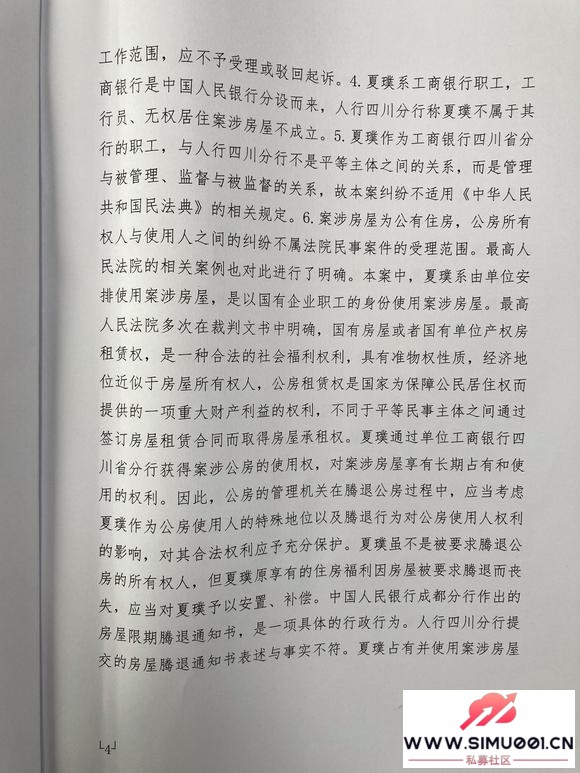 工作范围，应不予受理或驳回起诉。4.夏璞系工商银行职工，工
商银行是中国人民银行分设而来，人行四川分行称夏璞不属于其
行员、无权居住案涉房屋不成立。5.夏璞作为工商银行四川省分
行的职工，与人行四川分行不是平等主体之间的关系，而是管理
与被管理、监督与被监督的关系，故本案纠纷不适用《中华人民
共和国民法典》的相关规定。6.案涉房屋为公有住房，公房所有
权人与使用人之间的纠纷不属法院民事案件的受理范围。最高人
民法院的相关案例也对此进行了明确。本案中，夏璞系由单位安
排使用案涉房屋，是以国有企业职工的身份使用案涉房屋。最高
人民法院多次在裁判文书中明确，国有房屋或者国有单位产权房
租赁权，是一种合法的社会福利权利，具有准物权性质，经济地
位近似于房屋所有权人，公房租赁权是国家为保障公民居住权而
提供的一项重大财产利益的权利，不同于平等民事主体之间通过
签订房屋租赁合同而取得房屋承租权。夏璞通过单位工商银行四
川省分行获得案涉公房的使用权，对案涉房屋享有长期占有和使
用的权利。因此，公房的管理机关在腾退公房过程中，应当考虑
夏璞作为公房使用人的特殊地位以及腾退行为对公房使用人权利
的影响，对其合法权利应予充分保护。夏璞虽不是被要求腾退公
房的所有权人，但夏璞原享有的住房福利因房屋被要求腾退而丧
失，应当对夏璞予以安置、补偿。中国人民银行成都分行作出的
房屋限期腾退通知书，是一项具体的行政行为。人行四川分行提
交的房屋腾退通知书表述与事实不符。夏璞占有并使用案涉房屋
4
WWW.SIMU001.CN
私募社区